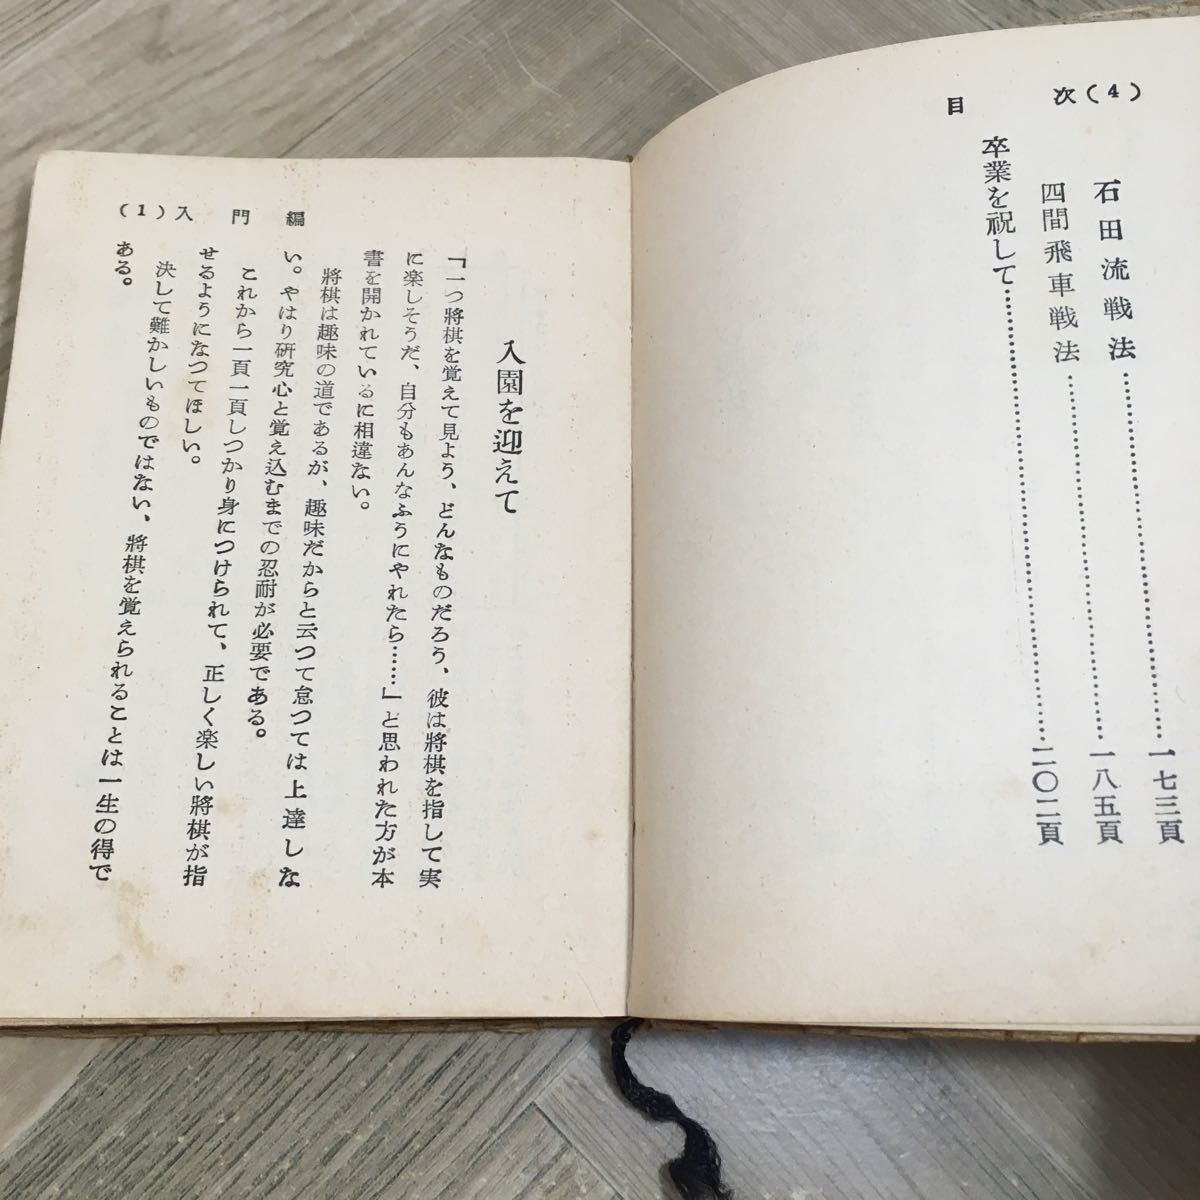 目 次(4)
石田流戦法……………………………一七三頁
四間飛車戦法……………………………一八五頁
卒業を祝して……………………………二〇二頁
(1)入門編
入園を迎えて
「一つ將棋を覚えて見よう、どんなものだろう、彼は將棋を指して実
に楽しそうだ、自分もあんなふうにやれたら……」と思われた方が本
書を開かれているに相違ない。
將棋は趣味の道であるが、趣味だからと云つて怠つては上達しな
い。やはり研究心と覚え込むまでの忍耐が必要である。
これから一頁一頁しつかり身につけられて、正しく楽しい將棋が指
せるようになつてほしい。
決して難かしいものではない、將棋を覚えられることは一生の得で
ある。